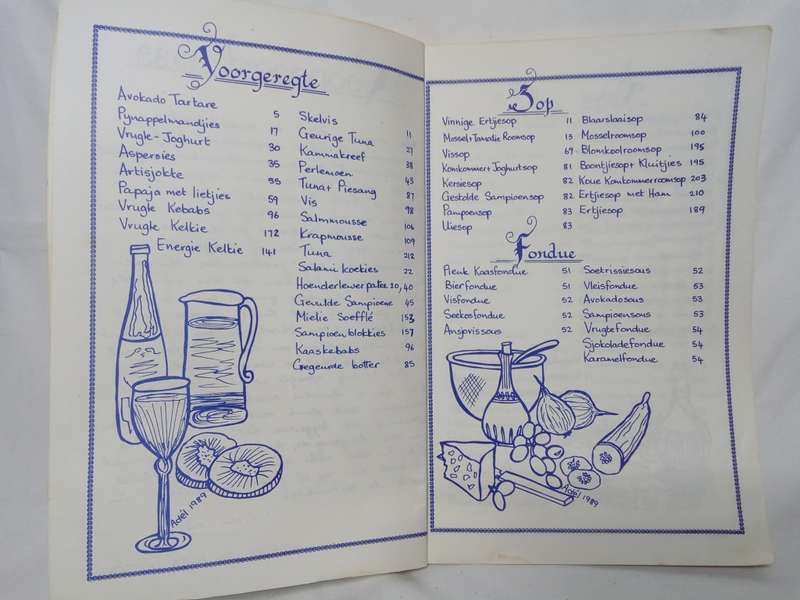 Voorgeregte
Avokado Tartare 5
Pynappelmandjies 17
Vrugte-Joghurt 30
Aspersies 35
Artisjokke 55
Papaja met lietjies 59
Vrugte Kebabs 96
Vrugte Kelkie 172
Energie Kelkie 141
Skelvis 11
Geurige Tuna 27
Kammakreef 38
Perlemoen 43
Tuna + Piesang 87
Vis 98
Salmmousse 106
Krapmousse 109
Tuna 212
Salami koekies 22
Hoenderlewerpatee 20,40
Gevulde Sampioene 45
Mielie Soefflé 153
Sampioenblokkies 157
Kaaskebabs 96
Gegeurde botter 85
Adél 1989
Sop
Vinnige Ertjiesop 11
Mossel + Tamatie Roomsop 13
Vissop 67
Komkommer + Joghurtsop 81
Kersiesop 82
Gestolde Sampioensop 82
Pampoensop 83
Uiesop 83
Blaarslaaisop 84
Mosselroomsop 100
Blomkoolroomsop 195
Boontjiesop + Kluitjies 195
Koue Komkommerroomsop 203
Ertjiesop met Ham 210
Ertjiesop 189
Fondue
Pienk Kaasfondue 51
Bierfondue 51
Visfondue 52
Seekosfondue 52
Ansjovissous 52
Soetrissiesous 52
Vleisfondue 53
Avokadosous 53
Sampioensous 53
Vrugtefondue 54
Sjokoladefondue 54
Karamelfondue 54
Adél 1989